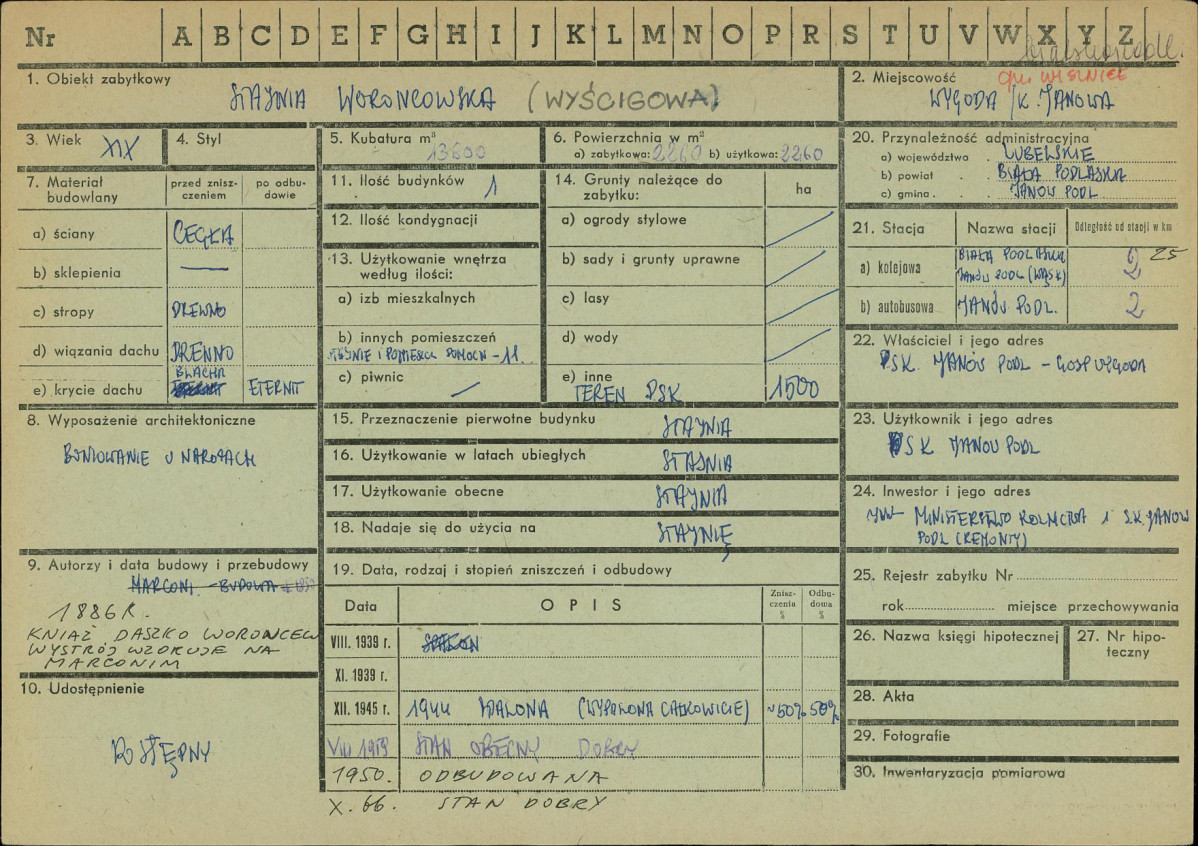 Nr A B C D E F G H I J K L M N O P R S T U V W X Y Z
1. Obiekt zabytkowy
STAJNIA WORONCOWSKA (WYŚCIGOWA)
2. Miejscowość gm. WISZNICE
WYGODA /K. JANOWA
3. Wiek XIX
4. Styl
5. Kubatura m³
13600
6. Powierzchnia w m²
a) zabytkowa: 2260 b) użytkowa: 2260
20. Przynależność administracyjna
a) województwo . LUBELSKIE
b) powiat . . BIAŁA PODLASKA
c) gmina . . JANÓW PODL.
7. Materiał budowlany
przed zniszczeniem
po odbudowie
a) ściany CEGŁA
b) sklepienia —
c) stropy DREWNO
d) wiązania dachu DREWNO
BLACHA
e) krycie dachu ETERNIT
11. Ilość budynków 1
12. Ilość kondygnacji
13. Użytkowanie wnętrza
według ilości:
a) izb mieszkalnych
b) innych pomieszczeń
STAJNIE I POMIESZCZ. POMOCN - 11.
c) piwnic —
14. Grunty należące do
zabytku:
ha
a) ogrody stylowe
b) sady i grunty uprawne
c) lasy
d) wody
e) inne
TEREN PSK 1500
21. Stacja
Nazwa stacji
Odległość od stacji w km
a) kolejowa BIAŁA PODLASKA 25
JANÓW PODL (WĄSK) 2
b) autobusowa JANÓW PODL. 2
22. Właściciel i jego adres
PSK. JANÓW PODL - GOSP WYGODA
8. Wyposażenie architektoniczne
BONIOWANIE U NAROŻACH
15. Przeznaczenie pierwotne budynku STAJNIA
16. Użytkowanie w latach ubiegłych STAJNIA
17. Użytkowanie obecne STAJNIA
18. Nadaje się do użycia na STAJNIĘ
23. Użytkownik i jego adres
PSK JANÓW PODL
24. Inwestor i jego adres
MINISTERSTWO ROLNICTWA I S.K. JANOW
PODL (REMONTY)
9. Autorzy i data budowy i przebudowy
MARCONI - BUDOWA
1886 R.
KNIAŹ DASZKO WORONCEW
WYSTRÓJ WZORUJE NA
MARCONIM
19. Data, rodzaj i stopień zniszczeń i odbudowy
Data
OPIS
Zniszczenia %
Odbudowa %
VIII. 1939 r.
XI. 1939 r.
XII. 1945 r. 1944 SPALONA (WYPALONA CAŁKOWICIE) ~50% 50%
VIII 1959 STAN OBECNY DOBRY
1950. ODBUDOWANA
X. 66. STAN DOBRY
25. Rejestr zabytku Nr
rok miejsce przechowywania
26. Nazwa księgi hipotecznej
27. Nr hipoteczny
10. Udostępnienie
DOSTĘPNY
28. Akta
29. Fotografie
30. Inwentaryzacja pomiarowa